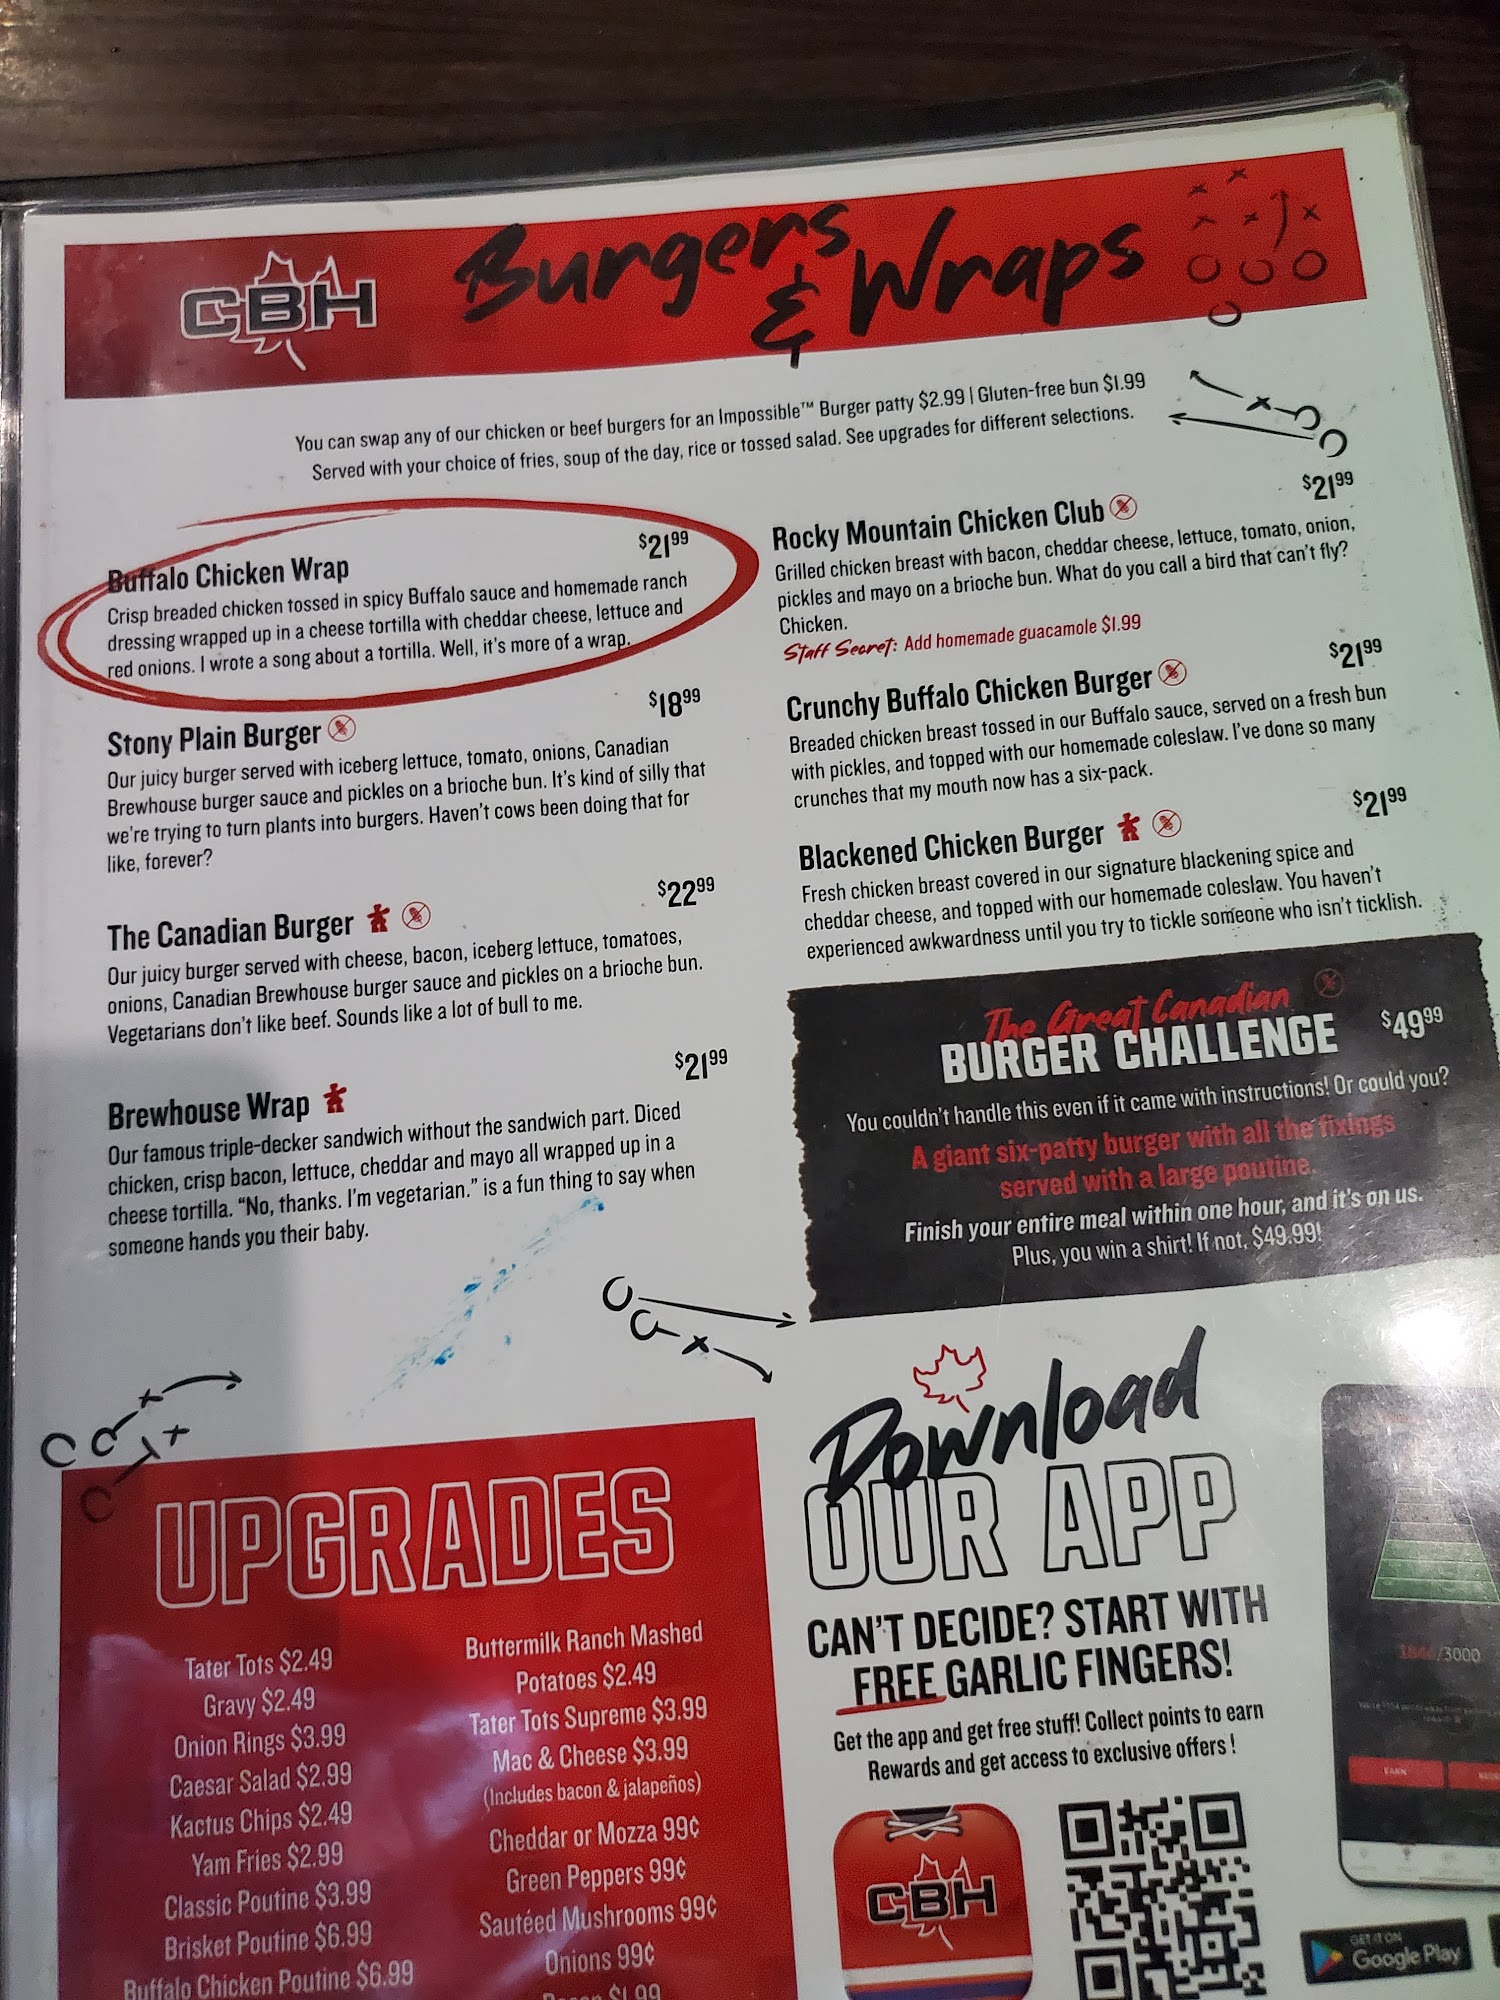 CBH
Burgers
& Wraps
You can swap any of our chicken or beef burgers for an Impossible™ Burger patty $2.99 | Gluten-free bun $1.99
Served with your choice of fries, soup of the day, rice or tossed salad. See upgrades for different selections.
Buffalo Chicken Wrap $21⁹⁹
Crisp breaded chicken tossed in spicy Buffalo sauce and homemade ranch
dressing wrapped up in a cheese tortilla with cheddar cheese, lettuce and
red onions. I wrote a song about a tortilla. Well, it's more of a wrap.
Stony Plain Burger $18⁹⁹
Our juicy burger served with iceberg lettuce, tomato, onions, Canadian
Brewhouse burger sauce and pickles on a brioche bun. It's kind of silly that
we're trying to turn plants into burgers. Haven't cows been doing that for
like, forever?
The Canadian Burger $22⁹⁹
Our juicy burger served with cheese, bacon, iceberg lettuce, tomatoes,
onions, Canadian Brewhouse burger sauce and pickles on a brioche bun.
Vegetarians don't like beef. Sounds like a lot of bull to me.
Brewhouse Wrap $21⁹⁹
Our famous triple-decker sandwich without the sandwich part. Diced
chicken, crisp bacon, lettuce, cheddar and mayo all wrapped up in a
cheese tortilla. "No, thanks. I'm vegetarian." is a fun thing to say when
someone hands you their baby.
Rocky Mountain Chicken Club $21⁹⁹
Grilled chicken breast with bacon, cheddar cheese, lettuce, tomato, onion,
pickles and mayo on a brioche bun. What do you call a bird that can't fly?
Chicken.
Staff Secret: Add homemade guacamole $1.99
Crunchy Buffalo Chicken Burger $21⁹⁹
Breaded chicken breast tossed in our Buffalo sauce, served on a fresh bun
with pickles, and topped with our homemade coleslaw. I've done so many
crunches that my mouth now has a six-pack.
Blackened Chicken Burger $21⁹⁹
Fresh chicken breast covered in our signature blackening spice and
cheddar cheese, and topped with our homemade coleslaw. You haven't
experienced awkwardness until you try to tickle someone who isn't ticklish.
The Great Canadian
BURGER CHALLENGE $49⁹⁹
You couldn't handle this even if it came with instructions! Or could you?
A giant six-patty burger with all the fixings
served with a large poutine.
Finish your entire meal within one hour, and it's on us.
Plus, you win a shirt! If not, $49.99!
UPGRADES
Tater Tots $2.49
Gravy $2.49
Onion Rings $3.99
Caesar Salad $2.99
Kactus Chips $2.49
Yam Fries $2.99
Classic Poutine $3.99
Brisket Poutine $6.99
Buffalo Chicken Poutine $6.99
Buttermilk Ranch Mashed
Potatoes $2.49
Tater Tots Supreme $3.99
Mac & Cheese $3.99
(Includes bacon & jalapeños)
Cheddar or Mozza 99¢
Green Peppers 99¢
Sautéed Mushrooms 99¢
Onions 99¢
$1.99
Download
OUR APP
CAN'T DECIDE? START WITH
FREE GARLIC FINGERS!
Get the app and get free stuff! Collect points to earn
Rewards and get access to exclusive offers!
CBH
/3000
EARN
GET IT ON
Google Play